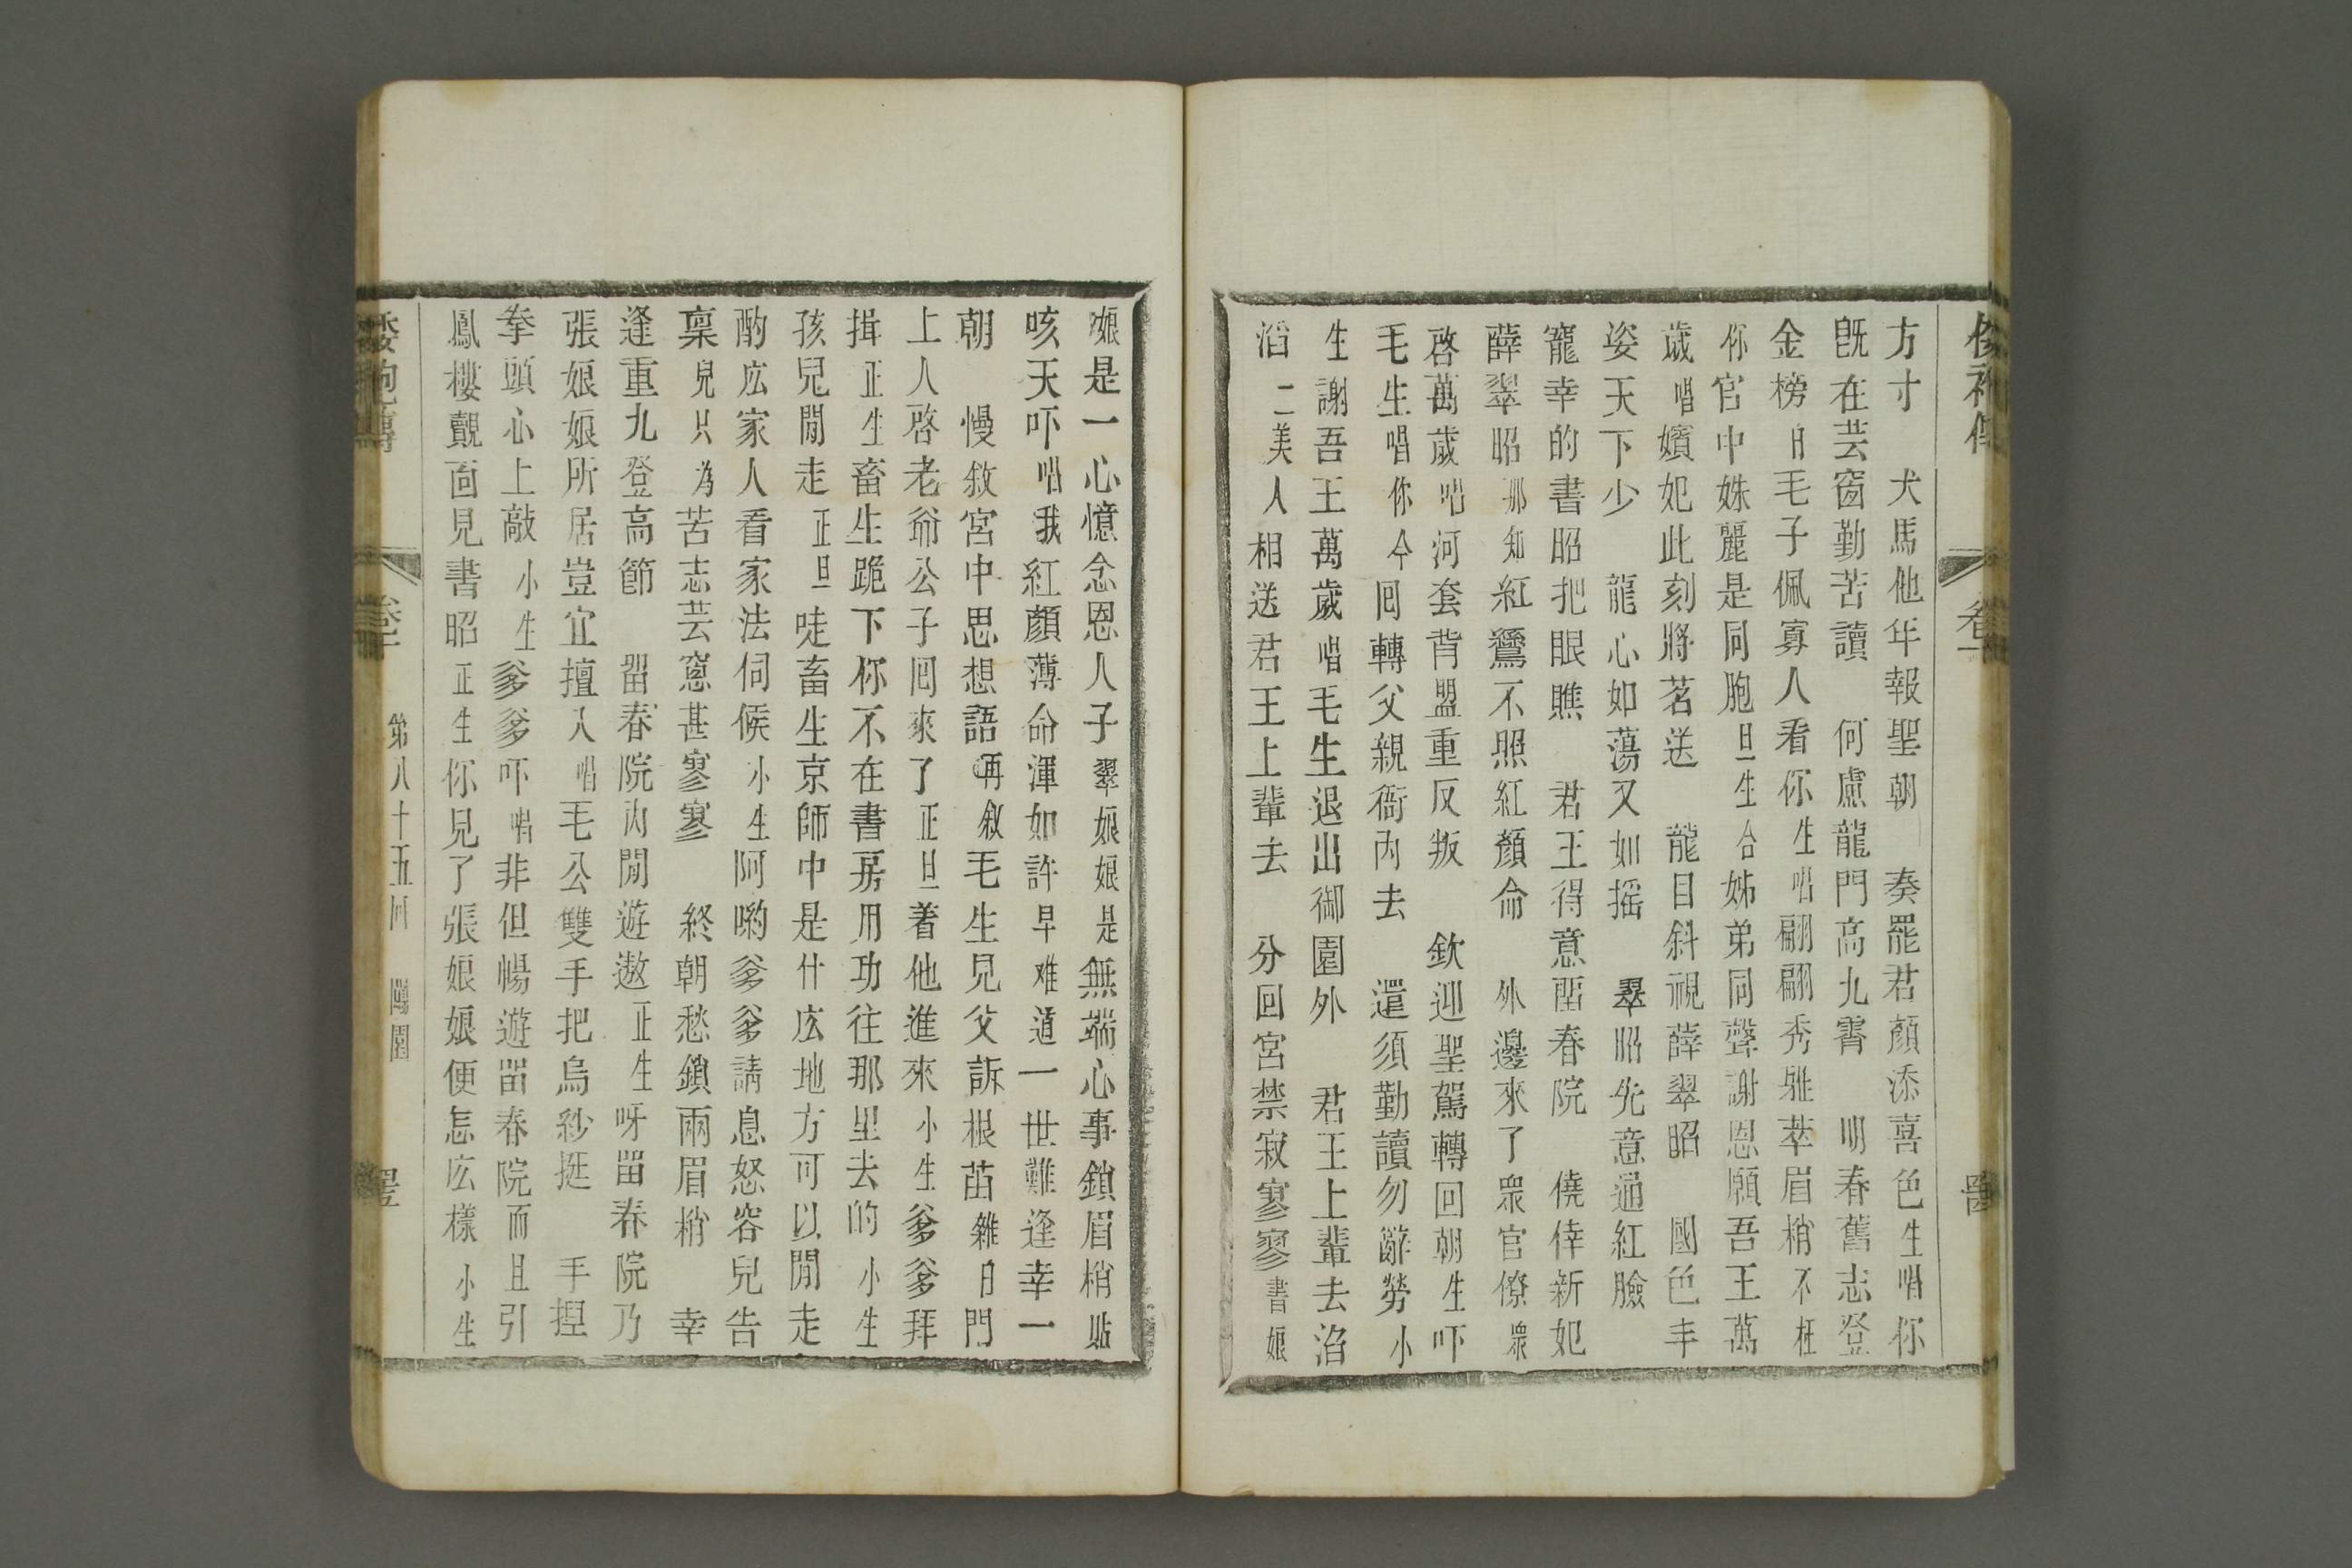 方寸 犬馬他年報聖朝 奏罷君顔添喜色生唱你
旣在芸窗勤苦讀 何慮龍門高九霄 明春舊志登
金榜日毛子佩寡人看你生唱翩翩秀雅萃眉梢不枉
你官中姝麗是同胞旦生合姊弟同聲謝恩願吾王萬
歲唱嬪妃此刻將茗送 龍目斜視薛翠昭 國色丰
姿天下少 龍心如蕩又如摇 翠昭先意通紅臉
寵幸的書昭把眼瞧 君王得意畱春院 僥倖新妃
薛翠昭那知紅鸞不照紅顏命 外邊來了衆官僚衆
啓萬歲唱河套背盟重反叛 欽迎聖駕轉回朝生吓
毛生唱你今囘轉父親衙內去 還須勤讀勿辭勞小
生謝吾王萬歲唱毛生退出御園外 君王上輦去滔
滔二美人相送君王上輦去 分回宮禁寂寥寥書娘
娘是一心憶念恩人子翠娘娘是無端心事鎖眉梢貼
咳天吓唱我紅顏薄命渾如許早难道一世難逢幸一
朝 慢敘宮中思想語再敘毛生見父訴根苗雜日門
上人啓老爺公子囘來了正旦着他進來小生爹爹拜
揖正生畜生跪下你不在書房用功往那里去的小生
孩兒閒走正旦唗畜生京師中是什庅地方可以閒走
酌庅家人看家法伺候小生阿喲爹爹請息怒容兒告
稟兒只為苦志芸窻甚寥寥 終朝愁鎖兩眉梢 幸
逢重九登高節 畱春院內閒遊遨正生呀畱春院乃
張娘娘所居豈宜擅入唱毛公雙手把烏紗挺 手捏
拳頭心上敲小生爹爹吓唱非但暢遊畱春院而且引
鳳樓觀面見書昭正生你見了張娘娘便怎庅樣小生
卷一
第八十五囘 鬧園